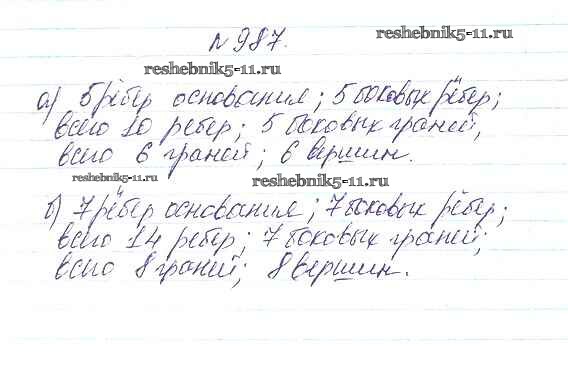 № 987.
reshebnik5-11.ru
reshebnik5-11.ru
а) 5 рёбер основания; 5 боковых рёбер;
всего 10 ребер; 5 боковых граней,
всего 6 граней; 6 вершин.
reshebnik5-11.ru
reshebnik5-11.ru
б) 7 рёбер основания; 7 боковых рёбер;
всего 14 ребер; 7 боковых граней;
всего 8 граней; 8 вершин.